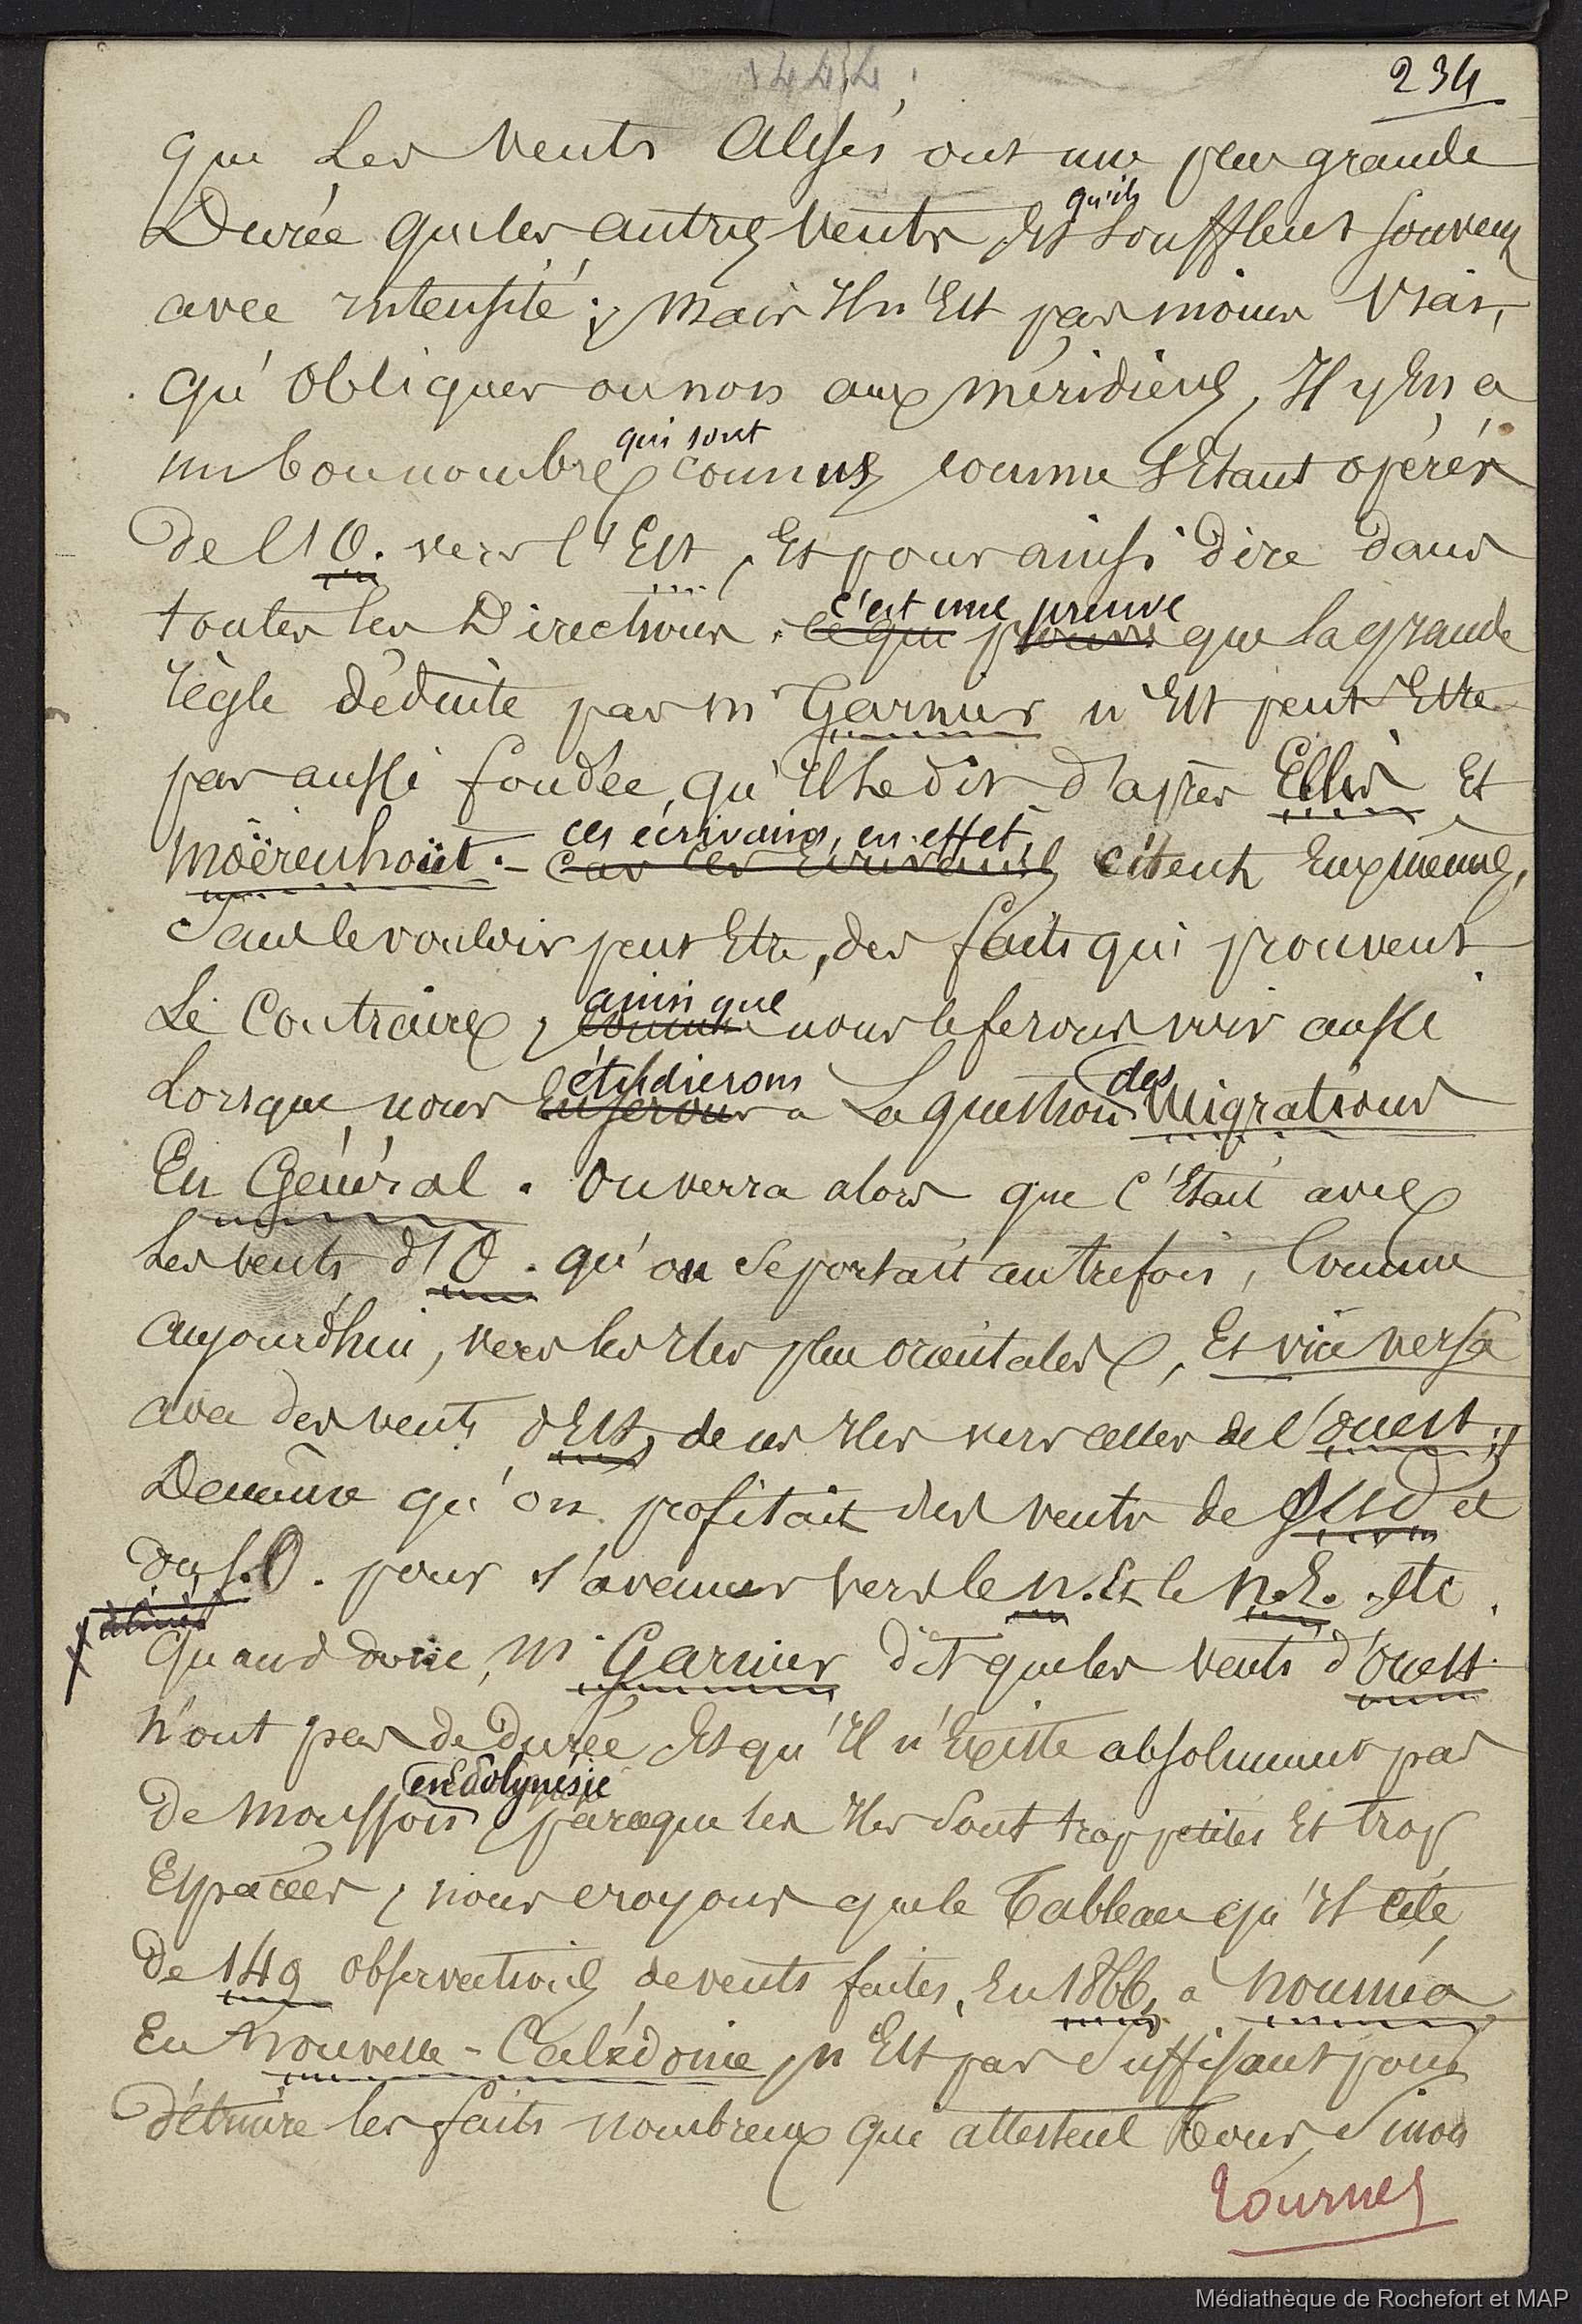 1444.
234
que les vents Alisés ont une plus grande
Durée que les autres vents et qu'ils soufflent souvent
avec intensité ; mais il n'Est pas moins vrai,
qu'obliques ou non aux méridiens, Il y En a
un bon nombre qui sont connus comme s'Etant opérés
de l'O. vers l'Est, Et pour ainsi dire dans
toutes les Directions. ce qui prouve c'est une preuve que la grande
règle déduite par Mr Garnier n'Est peut Etre
pas aussi fondée, qu'Il le dit d'après Ellis Et
Moërenhoüt. - car ces Ecrivains ces écrivains, en effet, citent Eux mêmes,
Sans le vouloir peut Etre, des faits qui prouvent
Le Contraire, comme ainsi que nous le ferons voir aussi
Lorsque nous En serons à étudierons La question des Migrations
En Général. On verra alors que c'Etait avec
Les vents d'O. qu'on se portait autrefois, Comme
aujourd'hui, vers les Iles plus orientales, Et vice versa
avec des vents d'Est, de ces Iles vers celles de l'ouest ;
De même qu'on profitait des vents de Sud et
du S.O. pour s'avancer vers le N. Et le N.E. etc.
alinéa
Quand donc, Mr Garnier dit que les vents d'ouest
n'ont pas de Durée Et qu'Il n'Existe absolument pas
de Mousson en Polynésie, parceque les Iles sont trop petites Et trop
Espacées, nous croyons que le Tableau qu'Il cite
de 149 observations de vents faites, En 1866, à Nouméa
En Nouvelle-Calédonie, n'Est pas suffisant pour
détruire les faits nombreux qui attestent Tous, Sinon
Tournez
Médiathèque de Rochefort et MAP